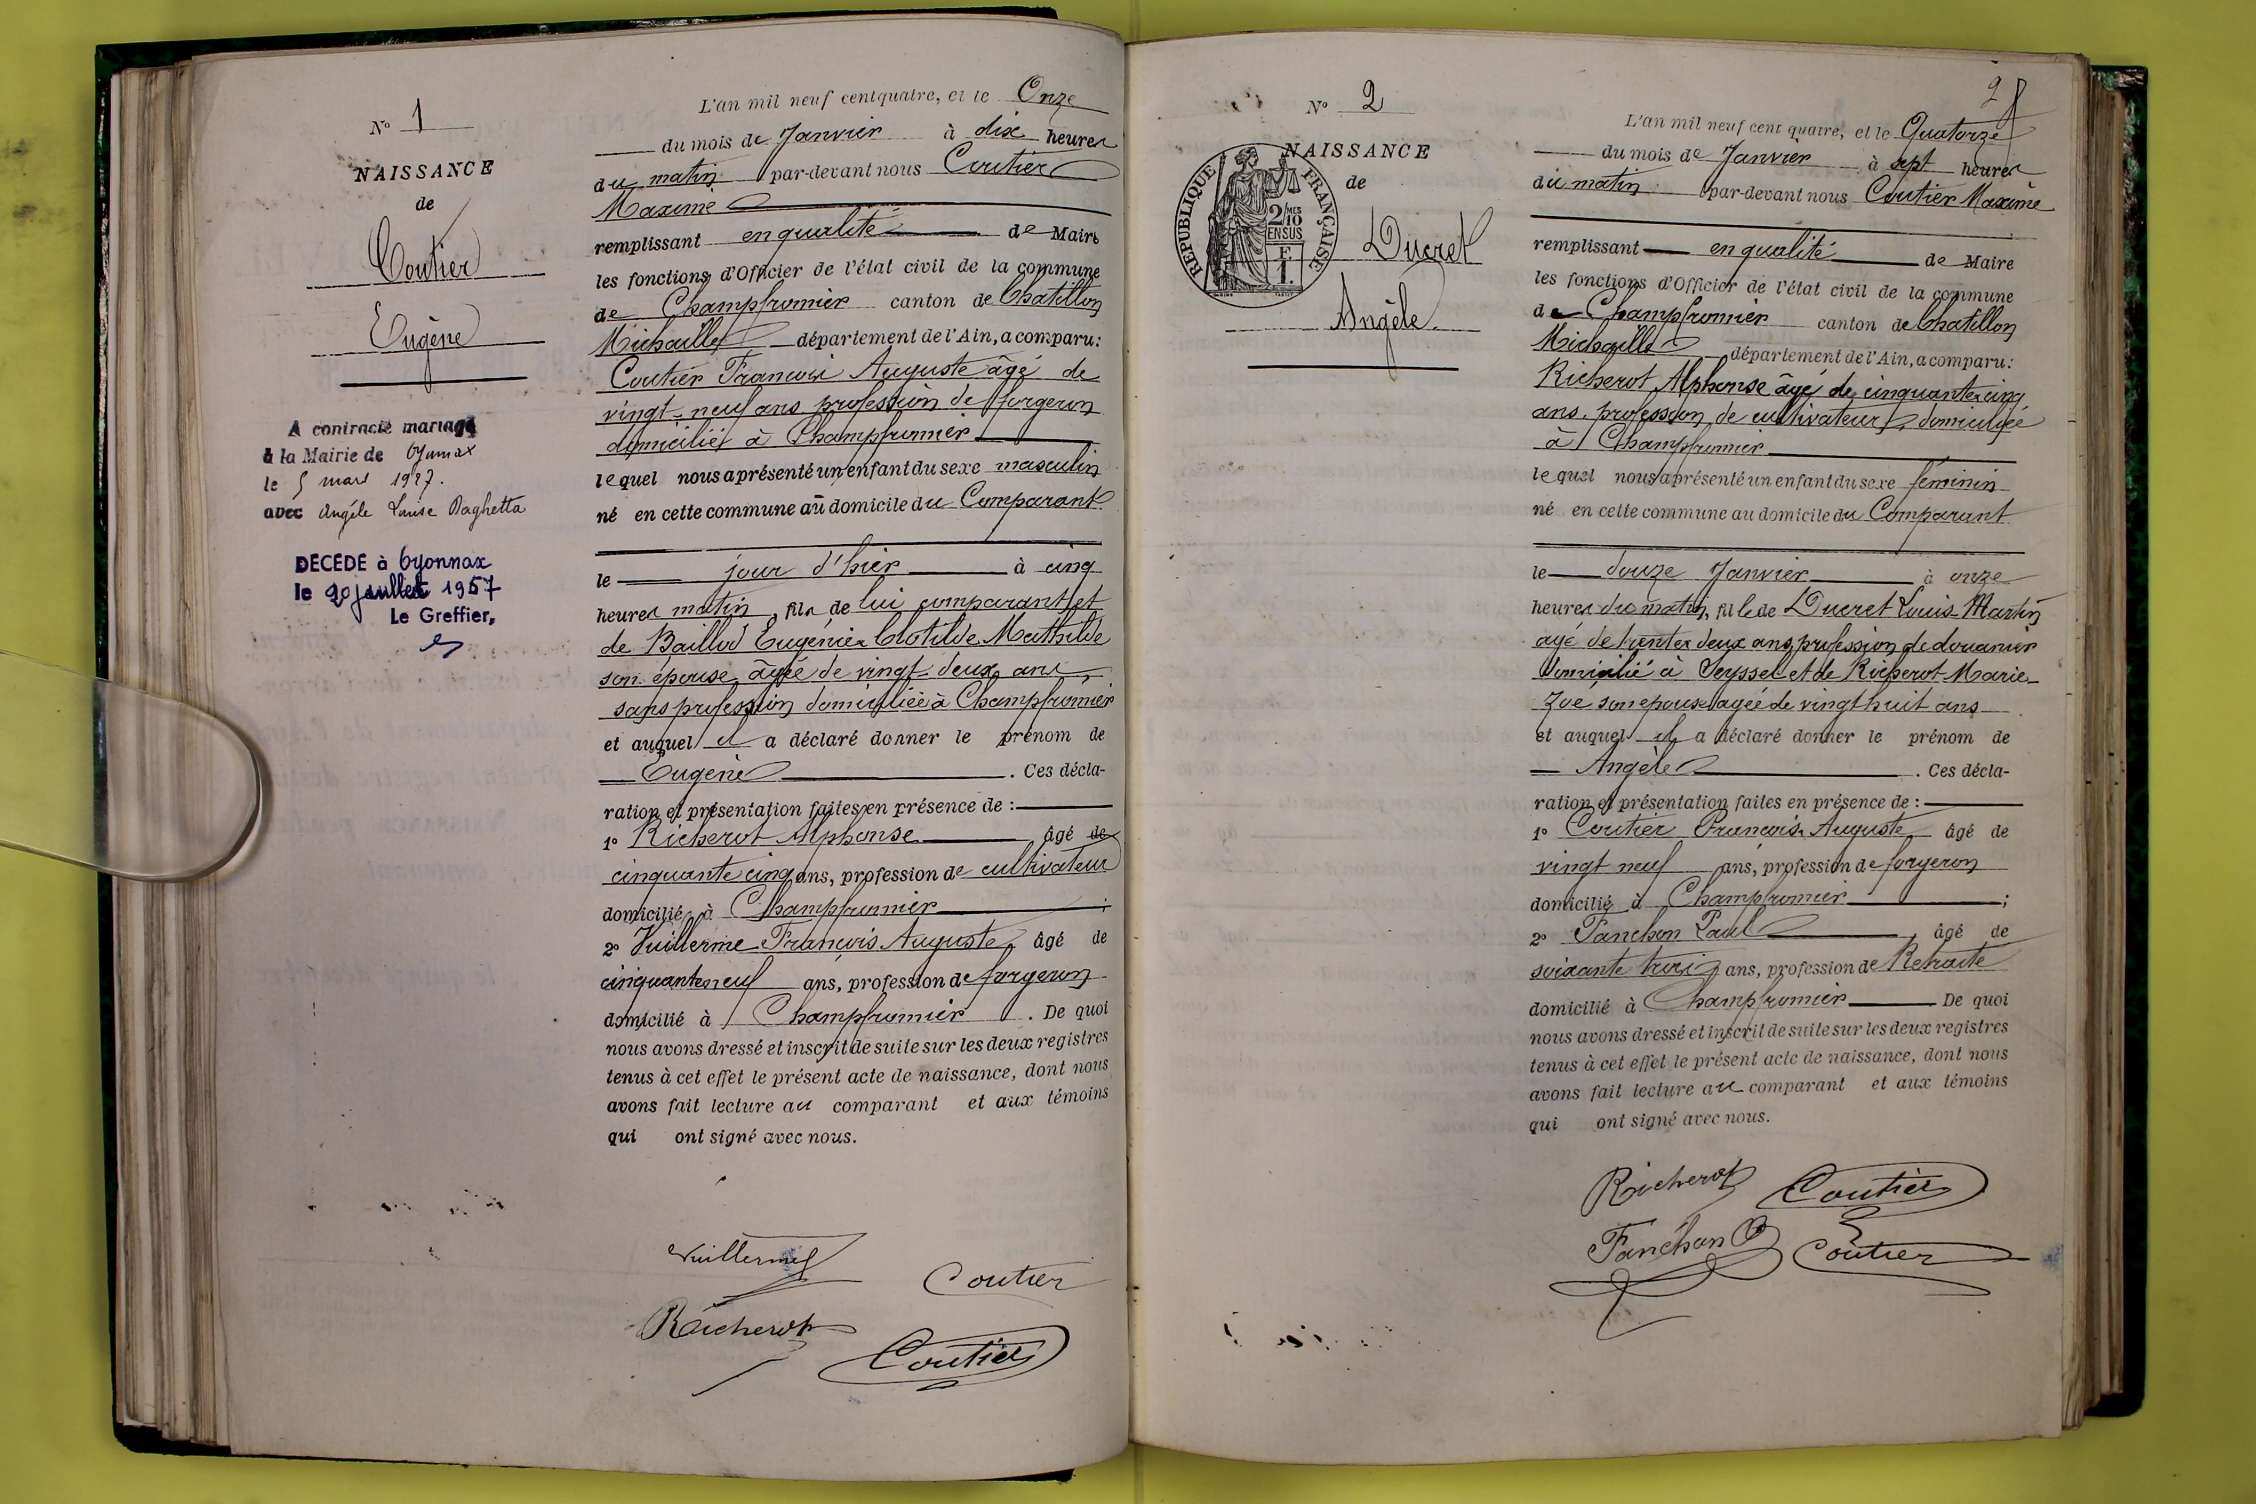 N° 1
NAISSANCE
de
Coutier
Eugène
A contracté mariage
à la Mairie de Oyonnax
le 5 mars 1927.
avec Angèle Louise Daghetta
DECEDE à Oyonnax
le 20 juillet 1957
Le Greffier,
L'an mil neuf cent quatre, et le Onze
du mois de Janvier à dix heures
du matin par-devant nous Coutier
Maxime
remplissant en qualité de Maire
les fonctions d'Officier de l'état civil de la commune
de Champfromier canton de Chatillon
Michaille département de l'Ain, a comparu:
Coutier François Auguste âgé de
vingt-neuf ans profession de forgeron
domicilié à Champfromier
lequel nous a présenté un enfant du sexe masculin
né en cette commune au domicile du Comparant
le jour d'hier à cinq
heures matin, fils de lui comparant et
de Baillod Eugénie Clotilde Mathilde
son épouse âgée de vingt-deux ans,
sans profession domiciliée à Champfromier
et auquel il a déclaré donner le prénom de
Eugène. Ces décla-
ration et présentation faites en présence de :
1° Richerot Alphonse âgé de
cinquante cinq ans, profession de cultivateur
domicilié à Champfromier ;
2° Vuillerme François Auguste, âgé de
cinquante neuf ans, profession de forgeron
domicilié à Champfromier. De quoi
nous avons dressé et inscrit de suite sur les deux registres
tenus à cet effet le présent acte de naissance, dont nous
avons fait lecture au comparant et aux témoins
qui ont signé avec nous.
Vuillerme
Coutier
Richerot
Coutier
2
N° 2
NAISSANCE
de
RÉPUBLIQUE FRANÇAISE
2/10 MES
EN SUS
F
1.
Ducret
Angèle
L'an mil neuf cent quatre, et le Quatorze
du mois de Janvier à sept heures
du matin par-devant nous Coutier Maxime
remplissant en qualité de Maire
les fonctions d'Officier de l'état civil de la commune
de Champfromier canton de Chatillon
Michaille département de l'Ain, a comparu:
Richerot Alphonse âgé de cinquante cinq
ans, profession de cultivateur, domicilié
à Champfromier
lequel nous a présenté un enfant du sexe féminin
né en cette commune au domicile du Comparant
le douze Janvier à onze
heures du matin, fille de Ducret Louis Martin
agé de trente deux ans profession de douanier
domicilié à Seyssel et de Richerot Marie
Zoé son épouse agée de vingt huit ans
et auquel il a déclaré donner le prénom de
Angèle. Ces décla-
ration et présentation faites en présence de :
1° Coutier François Auguste âgé de
vingt neuf ans, profession de forgeron
domicilié à Champfromier ;
2° Fanchon Paul, âgé de
soixante trois ans, profession de Retraité
domicilié à Champfromier De quoi
nous avons dressé et inscrit de suite sur les deux registres
tenus à cet effet le présent acte de naissance, dont nous
avons fait lecture au comparant et aux témoins
qui ont signé avec nous.
Richerot Coutier
Fanchon P Coutier